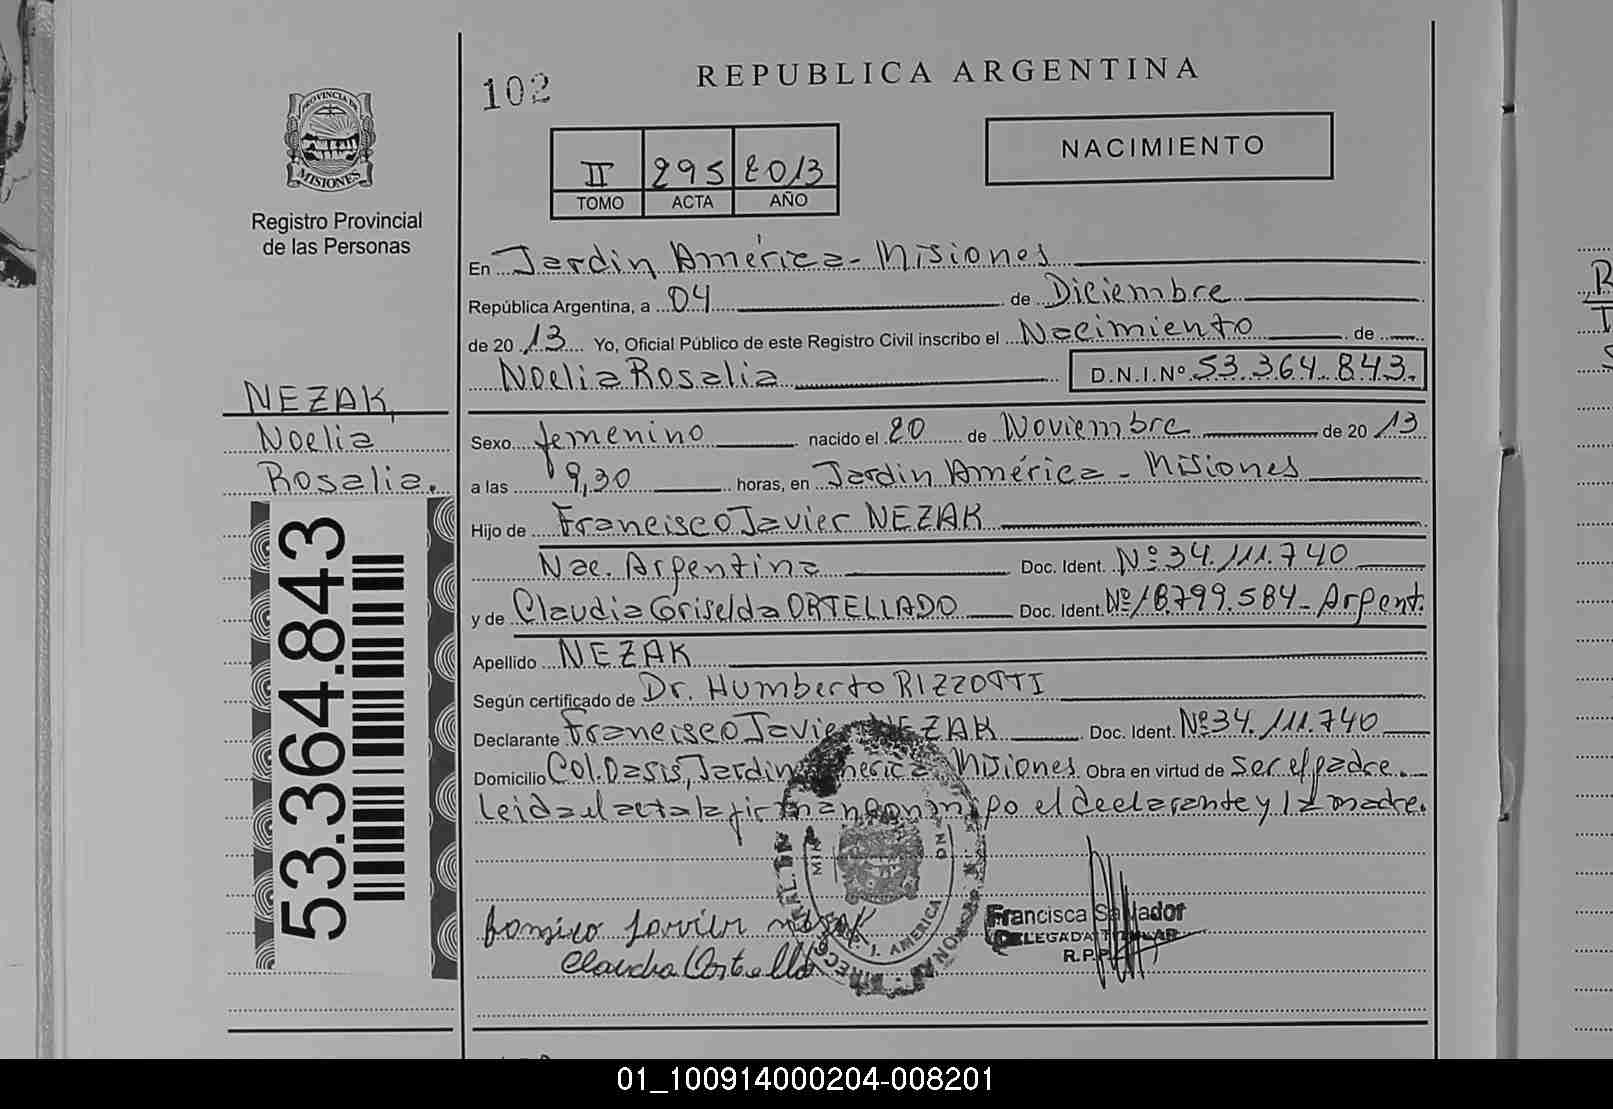 102
REPUBLICA ARGENTINA
PROVINCIA DE
MISIONES
Registro Provincial
de las Personas
II 295 2013
TOMO ACTA AÑO
NACIMIENTO
En Jardin América - Misiones
República Argentina, a 04 de Diciembre
de 20 13 Yo, Oficial Público de este Registro Civil inscribo el Nacimiento de
Noelia Rosalia D.N.I. Nº 53.364.843.
NEZAK,
Noelia
Rosalia.
53.364.843
Sexo femenino nacido el 20 de Noviembre de 20 13
a las 9,30 horas, en Jardin América - Misiones
Hijo de Francisco Javier NEZAK
Nac. Argentina Doc. Ident. Nº 34.111.740
y de Claudia Griselda ORTELLADO Doc. Ident. Nº 18.799.584 - Argent.
Apellido NEZAK
Según certificado de Dr. Humberto RIZZOTTI
Declarante Francisco Javier NEZAK Doc. Ident. Nº 34.111.740
Domicilio Col. Oasis, Jardin América, Misiones Obra en virtud de ser el padre.
Leida el acta la firman conmigo el declarante y la madre.
J. AMERICA
Francisca Salvador
DELEGADA TITULAR
R.P.P.
01_100914000204-008201